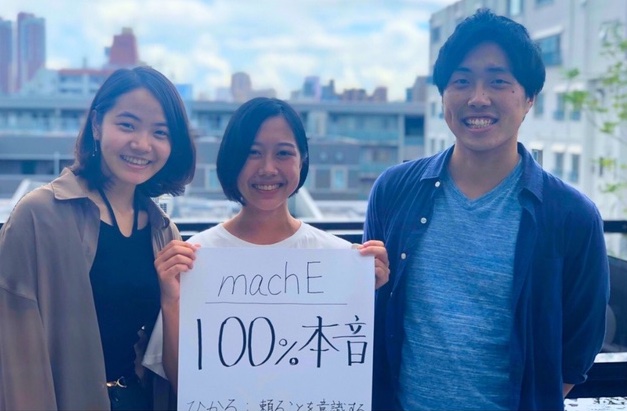 machE
100%本音
ひかる：頼ることを意識する